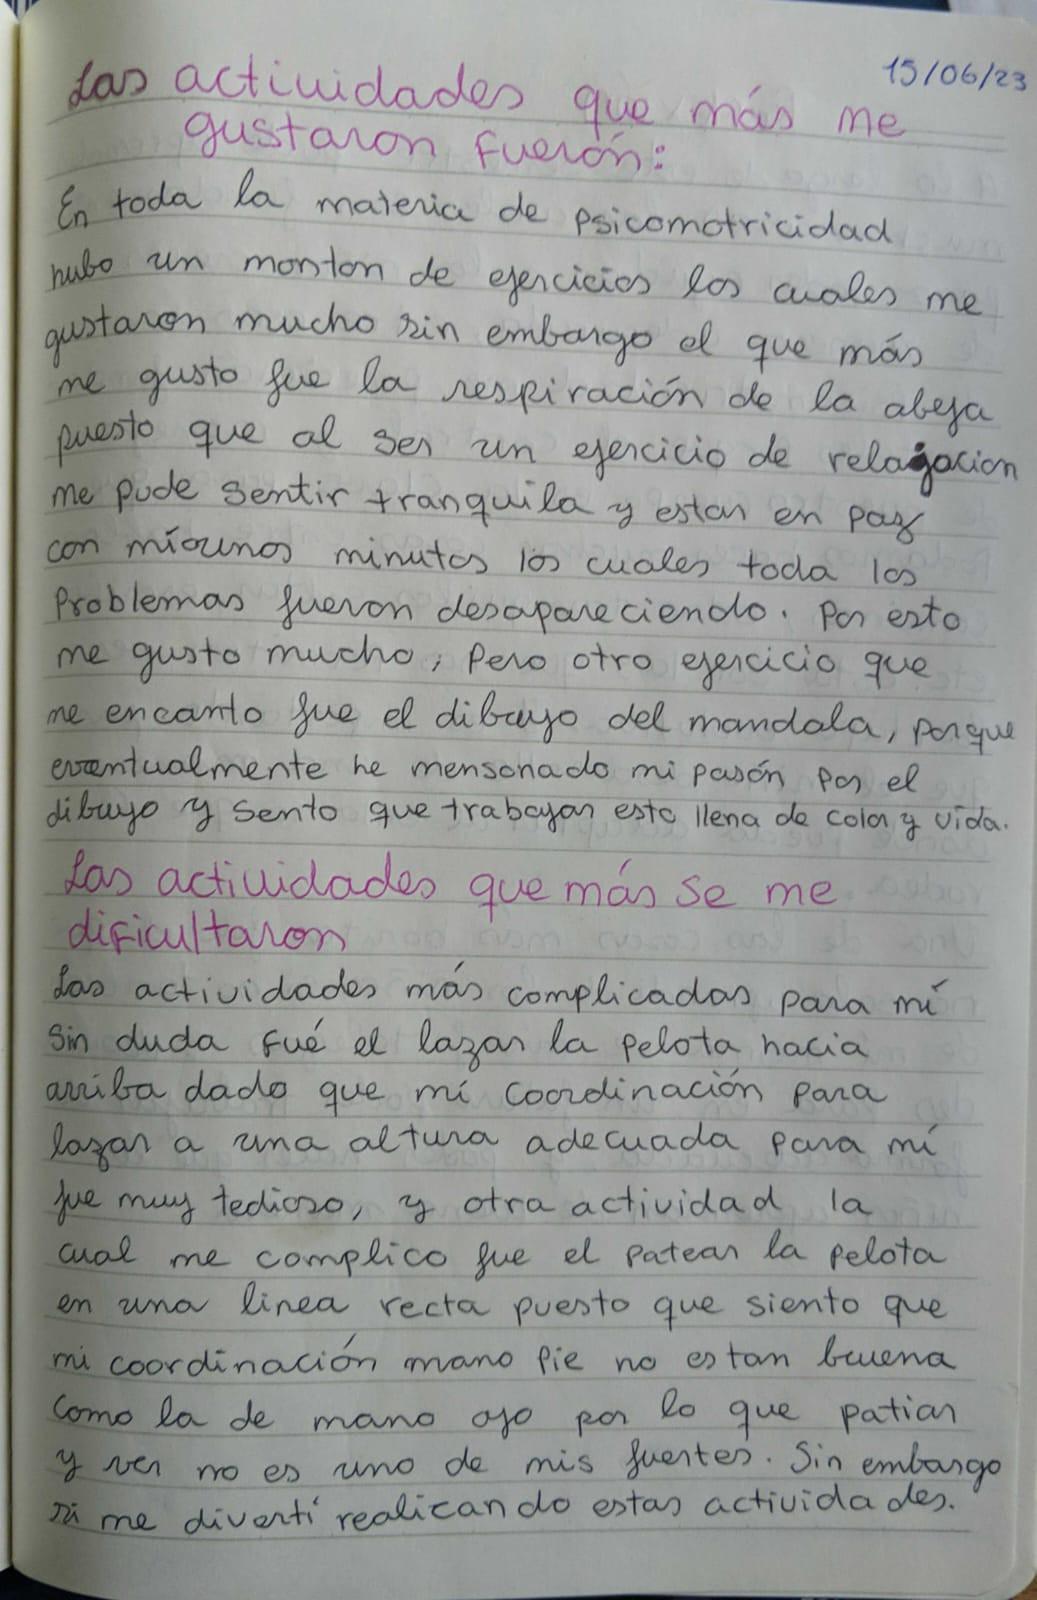 15/06/23
Las actividades que más me
gustaron fuerón:
En toda la materia de psicomotricidad
hubo un monton de ejercicios los cuales me
gustaron mucho sin embargo el que más
me gusto fue la respiración de la abeja
puesto que al ser un ejercicio de relajacion
me pude sentir tranquila y estar en paz
con mío unos minutos los cuales toda los
Problemas fueron desapareciendo. Por esto
me gusto mucho, Pero otro ejercicio que
me encanto fue el dibujo del mandala, porque
eventualmente he mensonado mi pasón por el
dibujo y sento que trabajar esto llena de color y vida.
Las actividades que más se me
dificultaron
Las actividades más complicadas para mí
sin duda fué el lazar la pelota hacia
arriba dado que mí coordinación para
lazar a una altura adecuada para mí
fue muy tedioso, y otra actividad la
cual me complico fue el patear la pelota
en una linea recta puesto que siento que
mi coordinación mano pie no es tan buena
como la de mano ojo por lo que patiar
y ver no es uno de mis fuertes. Sin embargo
si me divertí realizando estas actividades.